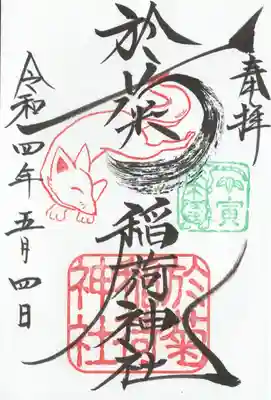 奉拝
於菊稲荷神社
令和四年五月四日
於菊
稲荷
神社